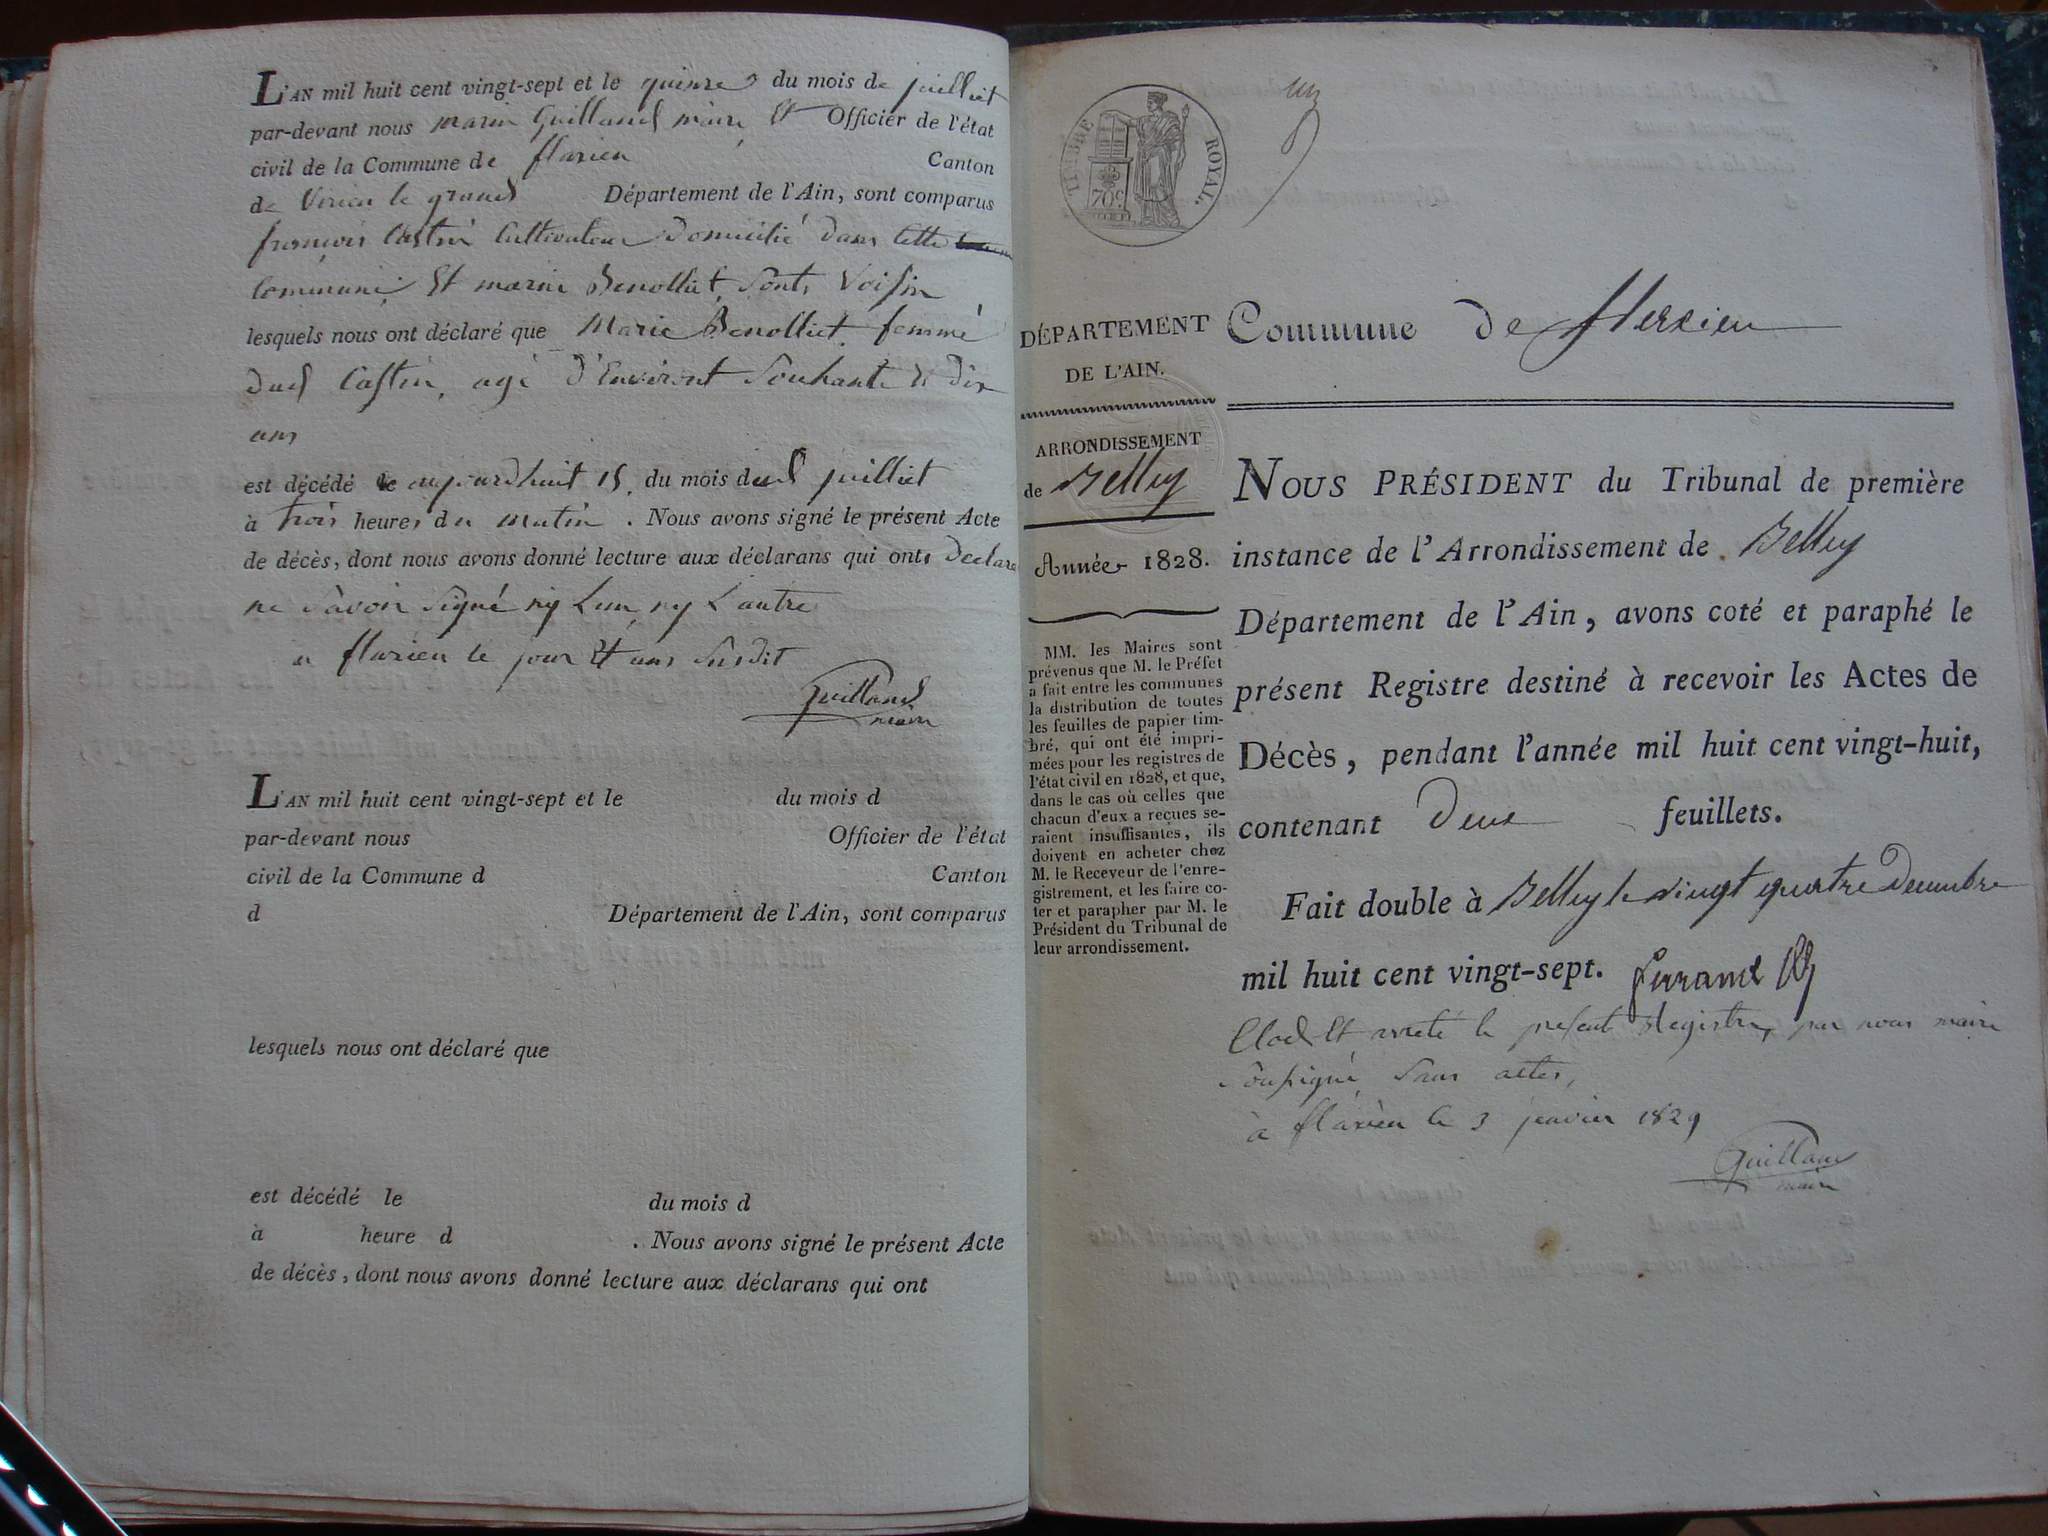 L'AN mil huit cent vingt-sept et le quinze du mois de juilliet
par-devant nous marin Guilland maire Et Officier de l'état
civil de la Commune de flaxieu Canton
de Virieu le grand Département de l'Ain, sont comparus
françois Castin Cultivateur Domicilié dans Cette
Commune Et marin Benolliet, Sont, Voisin
lesquels nous ont déclaré que Marie Benolliet femme
dud Castin, agé d'Environt Souhante & dix
ans
est décédé le aujourdhuit 15, du mois dud juilliet
à trois heures du Matin. Nous avons signé le présent Acte
de décès, dont nous avons donné lecture aux déclarans qui ont, Declare
ne Savoir Signé ny Lun, ny L'autre
a flaxieu le jour Et ans Susdit
Guilland
maire
L'AN mil huit cent vingt-sept et le du mois d
par-devant nous Officier de l'état
civil de la Commune d Canton
d Département de l'Ain, sont comparus
lesquels nous ont déclaré que
est décédé le du mois d
à heure d . Nous avons signé le présent Acte
de décès, dont nous avons donné lecture aux déclarans qui ont
TIMBRE ROYAL
70c
un
DÉPARTEMENT
DE L'AIN.
ARRONDISSEMENT
de Belley
Année 1828.
MM. les Maires sont
prévenus que M. le Préfet
a fait entre les communes
la distribution de toutes
les feuilles de papier tim-
bré, qui ont été impri-
mées pour les registres de
l'état civil en 1828, et que,
dans le cas où celles que
chacun d'eux a reçues se-
raient insuffisantes, ils
doivent en acheter chez
M. le Receveur de l'enre-
gistrement, et les faire co-
ter et parapher par M. le
Président du Tribunal de
leur arrondissement.
Commune de flexieu
NOUS PRÉSIDENT du Tribunal de première
instance de l'Arrondissement de Belley
Département de l'Ain, avons coté et paraphé le
présent Registre destiné à recevoir les Actes de
Décès, pendant l'année mil huit cent vingt-huit,
contenant Deux feuillets.
Fait double à Belley le vingt quatre Decembre
mil huit cent vingt-sept.
Clod Et arreté le present Registre, par nous maire
Soussigné Sans actes,
à flaxieu le 3 janvier 1829
Guilland
maire